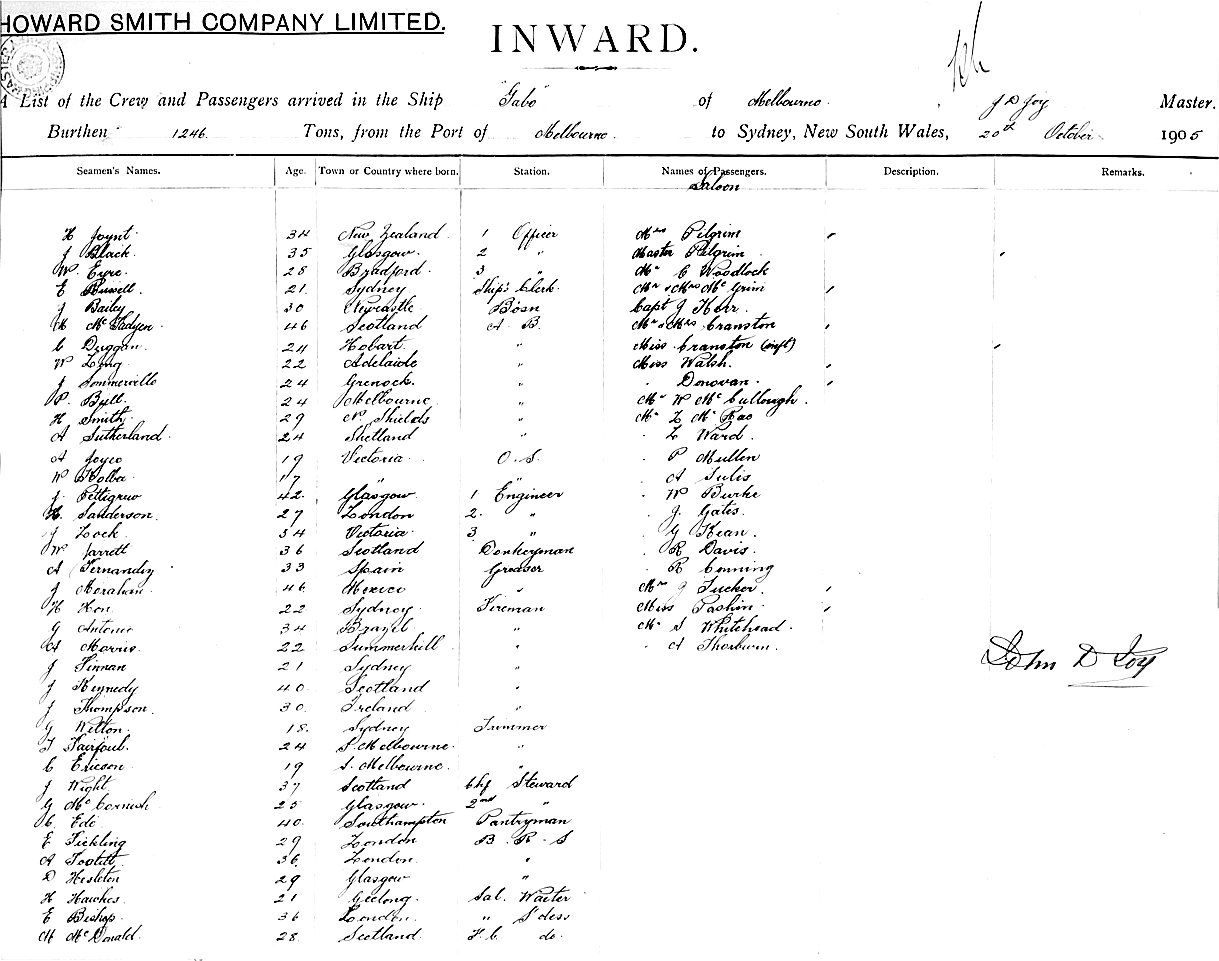 HOWARD SMITH COMPANY LIMITED.
INWARD.
A List of the Crew and Passengers arrived in the Ship "Gabo" of Melbourne. J D Joy Master.
Burthen 1246. Tons, from the Port of Melbourne. to Sydney, New South Wales, 20th October 1905
Seamen's Names. Age. Town or Country where born. Station. Names of Passengers. Description. Remarks.
Saloon
H Joynt 34 New Zealand. 1 Officer Mrs Pilgrim
J Black 35 Glasgow. 2 " Master Pilgrim
W. Eyre. 28 Bradford. 3 " Mr C Woodlock
E Russell. 21. Sydney Ship's Clerk. Mr & Mrs Mc Grim
J Bailey 30 Newcastle Bosn Capt J Kerr.
M Mc Fadyen 46 Scotland A. B. Mr & Mrs Cranston
C Duggan. 24 Hobart. " Miss Cranston (inft)
W Long 22 Adelaide " Miss Walsh.
J Sommerville 24 Grenock. " . Donovan.
P. Bull. 24 Melbourne. " Mr W Mc Cullough.
H Smith. 29 N Shields " Mr L McRae
A Sutherland. 24 Shetland " . L Ward.
A Joyce 19 Victoria. O. S. . P Mullen
W Holba 17 " " . A
J. Pettigrew 42. Glasgow. 1 Engineer . W Burke
H. Sanderson. 27 London 2. " . J. Gates.
J Lock. 34 Victoria. 3 " . G Kean.
W Jarrett 36 Scotland Donkeyman . R Davis.
A Fernandez 33 Spain Greaser . R
J 46 Mexico " Mrs J Tucker.
H Hon. 22 Sydney. Fireman Miss
G Antonio 34 Brazil " Mr S Whitehead.
A Morris. 22 Summerhill " . A Thorburn.
J Finnan 21 Sydney "
John D Joy
J Kennedy 40. Scotland "
J Thompson. 30. Ireland "
G Welton. 18. Sydney Trimmer
T Fairfoul. 24 S. Melbourne. "
C Ericson. 19 S. Melbourne. "
J Wight 37 Scotland Chf Steward
G Mc Cornish 25 Glasgow. 2nd "
C. Ede 40. Southampton Pantryman
E Tickling 29 London B. R. S
A Tootell. 36 London. "
D Hesleton 29 Glasgow "
H Hawkes 21 Geelong. Sal. Waiter
E Bishop. 36 London. " S'dess
M McDonald. 28. Scotland F. C. do.